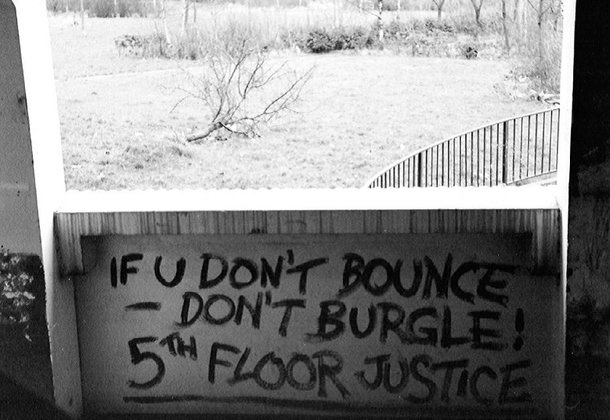 IF U DON'T BOUNCE
– DON'T BURGLE!
5TH FLOOR JUSTICE